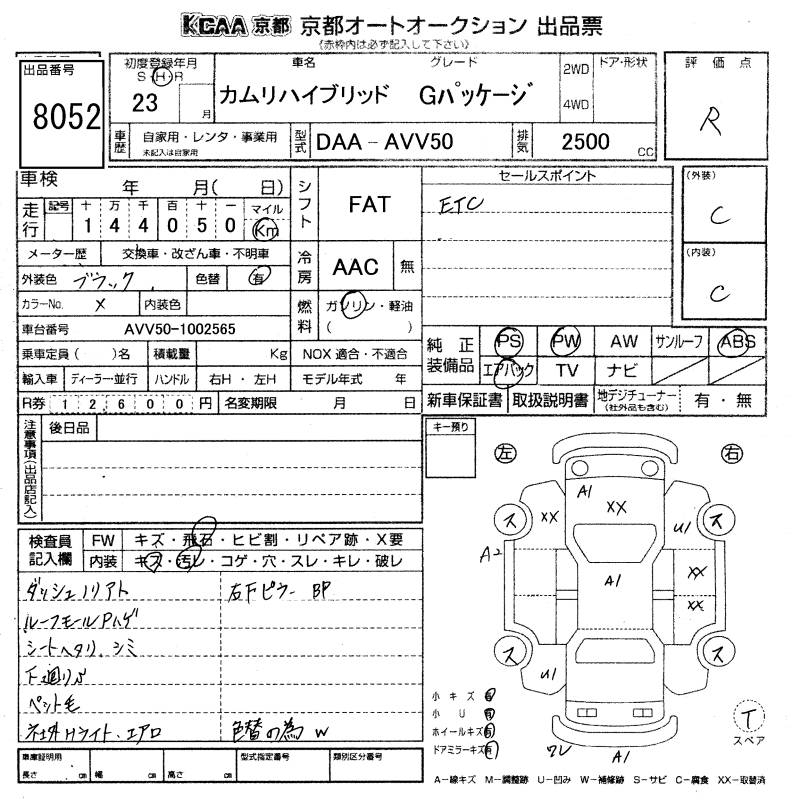 KCAA 京都 京都オートオークション 出品票
(赤枠内は必ず記入して下さい)
出品番号
8052
初度登録年月
S H R
23 月
車名 グレード
カムリハイブリッド Gパッケージ
2WD
4WD
ドア・形状
評価点
R
車歴 自家用・レンタ・事業用
未記入は自家用
型式 DAA-AVV50
排気 2500 CC
車検 年 月( 日)
走行 記号 十 万 千 百 十 一 マイル
1 4 4 0 5 0 Km
メーター歴 交換車・改ざん車・不明車
外装色 ブラック 色替 有
カラーNo. X 内装色
車台番号 AVV50-1002565
乗車定員( )名 積載量 Kg
輸入車 ディーラー・並行 ハンドル 右H・左H
R券 12,600円 名変期限 月 日
シフト FAT
冷房 AAC 無
燃料 ガソリン・軽油
( )
NOX 適合・不適合
モデル年式 年
セールスポイント
ETC
(外装)
C
(内装)
C
純正装備品 PS PW AW サンルーフ ABS
エアバック TV ナビ
新車保証書 取扱説明書 地デジチューナー
(社外品も含む)
有・無
注意事項(出品店記入)
後日品
キー預り
左 右
検査員記入欄
FW キズ・飛石・ヒビ割・リペア跡・X要
内装 キズ・汚レ・コゲ・穴・スレ・キレ・破レ
ダッシュノリアト 右Fピラー BP
ルーフモールPハゲ
シートヘタリ、シミ
下廻りサビ
ペット毛
社外Hライト、エアロ 色替の為 W
A1
XX XX
U1
ス ス
A2
A1
XX
XX
ス ス
U1
ワレ A1
小キズ 有
小U 有
ホイールキズ 有
ドアミラーキズ 有
T
スペア
車庫証明用
長さ cm 幅 cm 高さ cm
型式指定番号 類別区分番号
A-線キズ M-調整跡 U-凹み W-補修跡 S-サビ C-腐食 XX-取替済